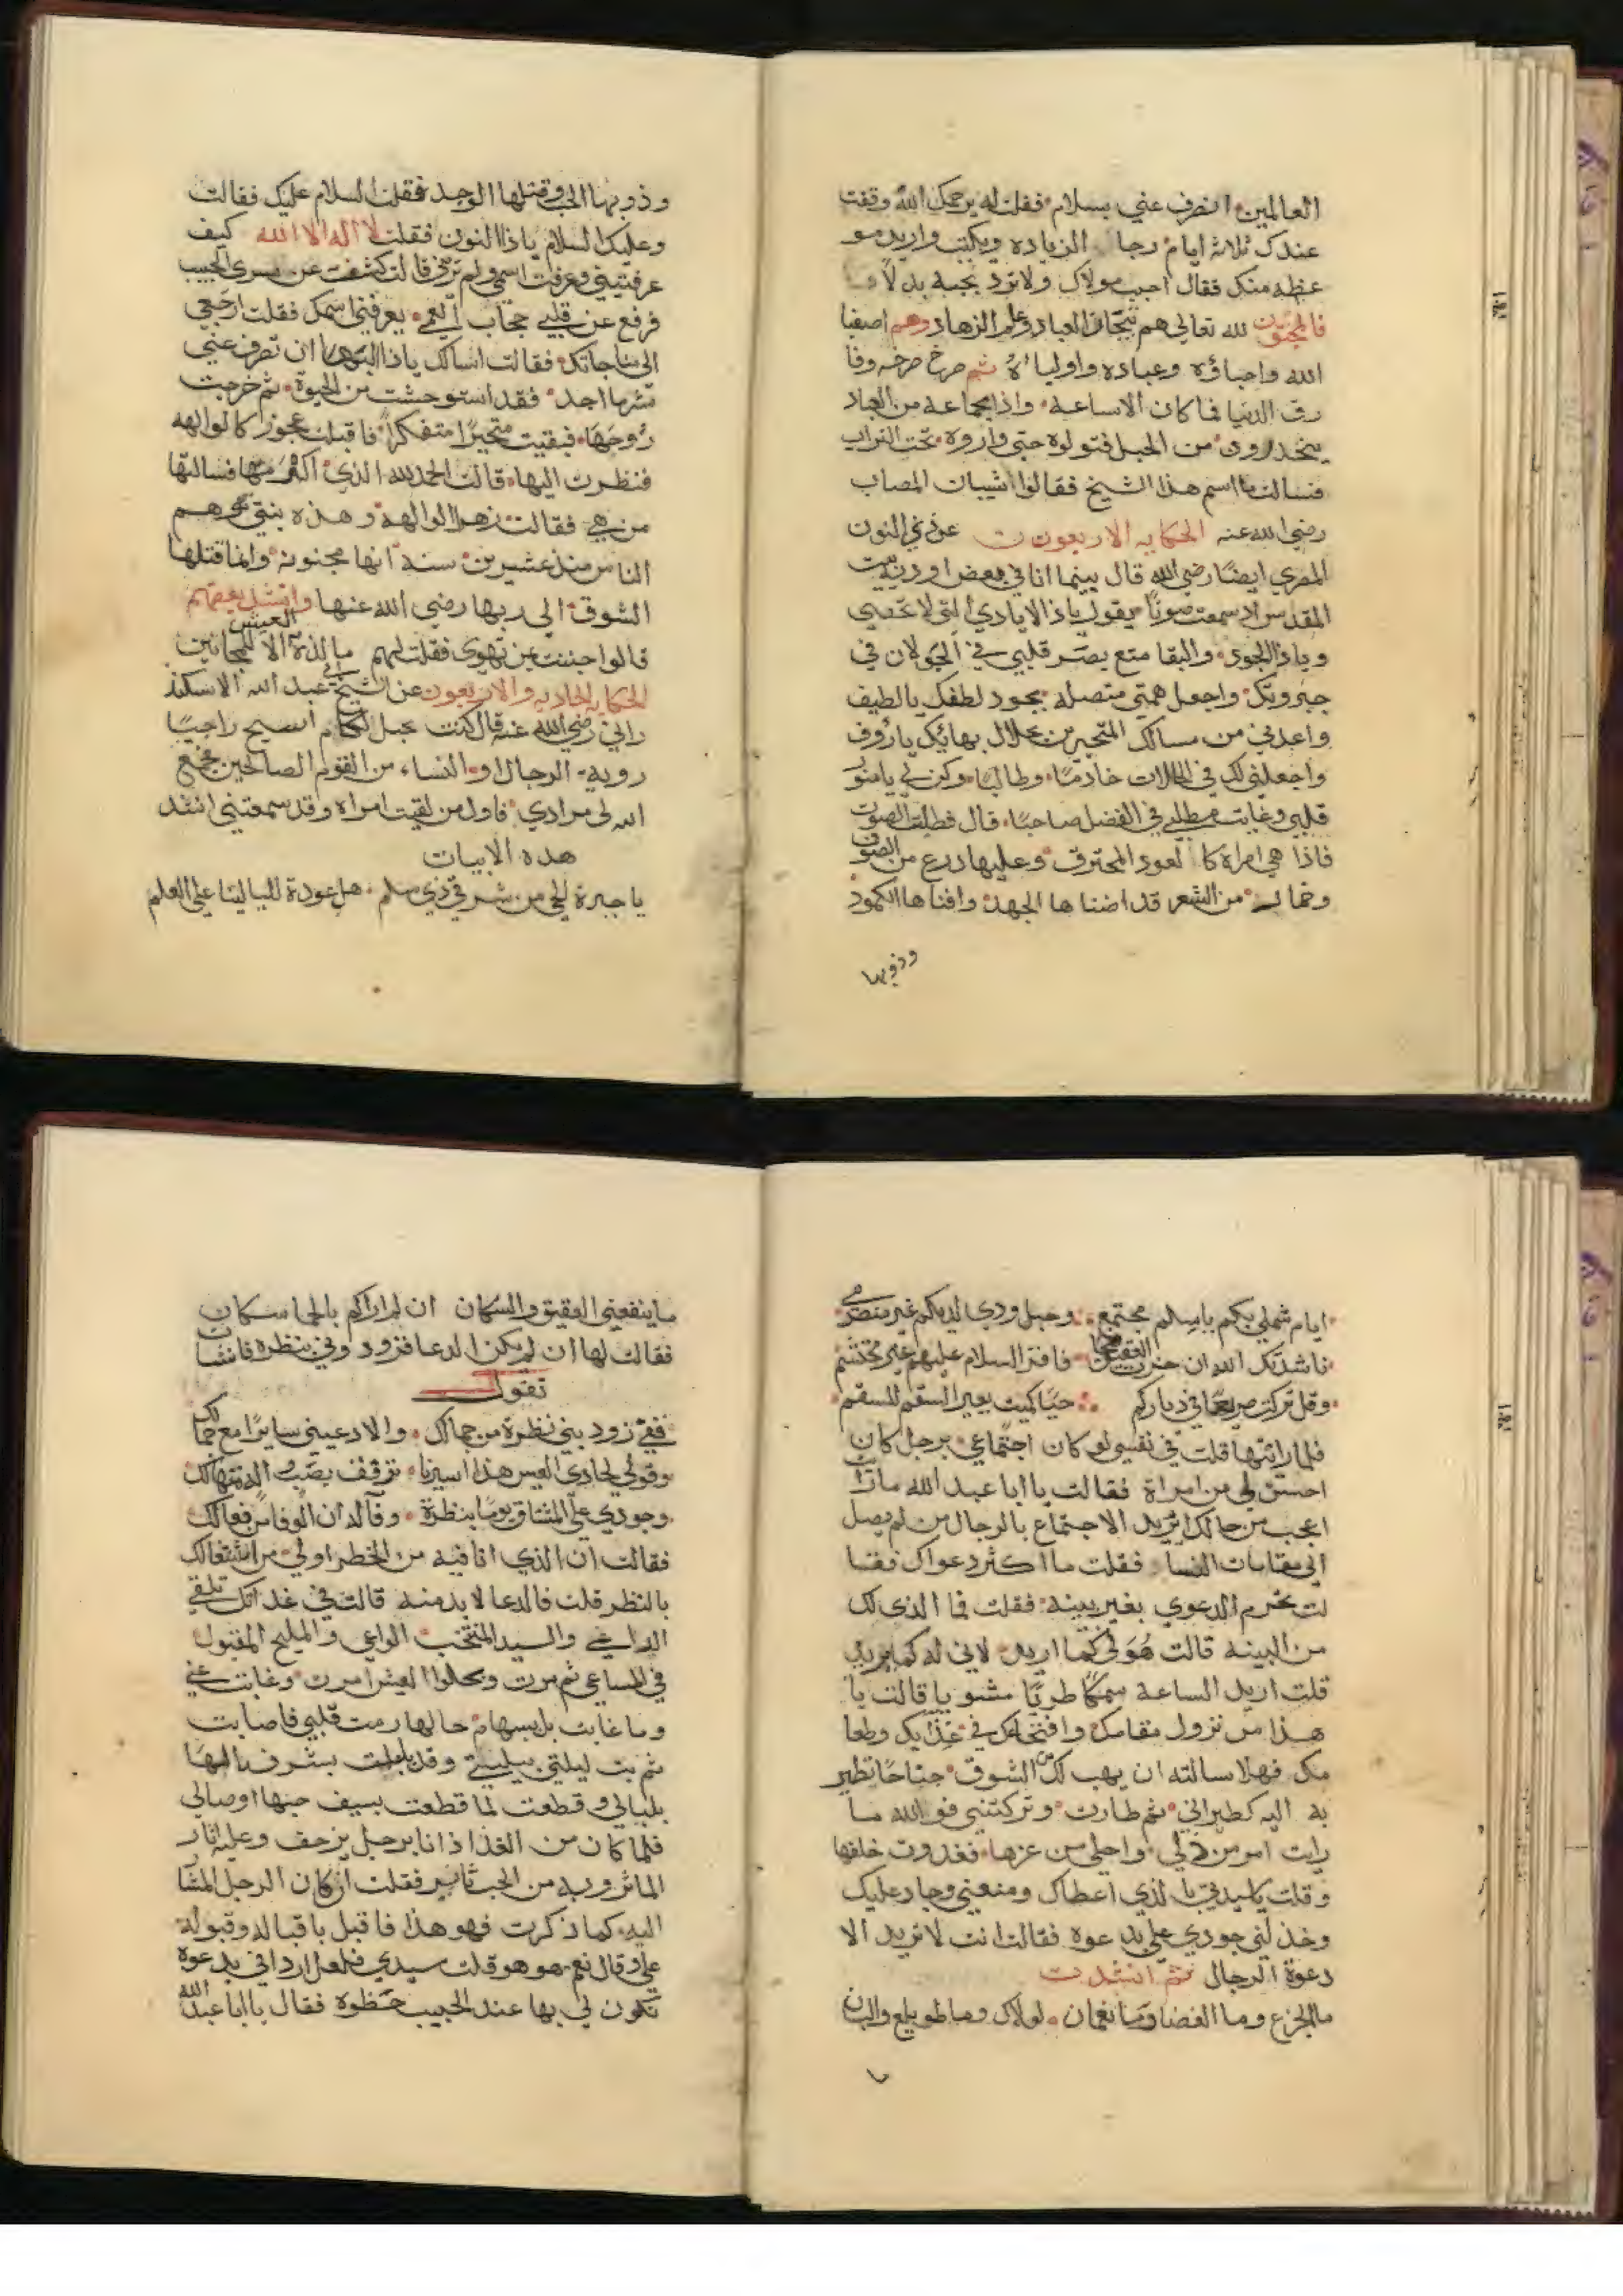 العالمين انصرف عني بسلام فقلت له يرحمك الله وقفت
عندك ثلاثة ايام رجا الزيادة ويكتب واريد مو
عظه منك فقال احبب مولاك ولا ترد بحبه بدلا
فالمحبون لله تعالى هم تيجان العباد وعلم الزهاد وهم اصفيا
الله واحباؤه وعباده واولياؤه ثم صرخ صرخه وفا
رق الدنيا فما كان الا ساعة واذا بجماعة من العباد
ينحدرون من الجبل فتولوه حتى واروه تحت التراب
فسالت ما اسم هذا الشيخ فقالوا شيبان المصاب
رضي الله عنه الحكايه الاربعون عن ذي النون
المصري ايضا رضي الله قال بينما انا في بعض اودية بيت
المقدس اذ سمعت صوتا يقول ياذا الايادي التي لا تحصى
وياذا الجود والبقا متع بصر قلبي في الجولان في
جبروتك واجعل همتي متصله بجود لطفك يالطيف
واعدني من مسالك المتحيرين بجلال بهائك يارؤف
واجعلني لك في الحالات خادما وطالبا وكن لي يامنور
قلبي وغايت مطلبي في الفضل صاحبا قال فطلبت الصوت
فاذا هي امراة كا لعود المحترق وعليها درع من الصوف
وخمار من الشعر قد اضناها الجهد وافناها الكمود
وذوبها
وذوبها الحب وقتلها الوجد فقلت السلام عليك فقالت
وعليك السلام ياذا النون فقلت لا اله الا الله كيف
عرفتيني وعرفت اسمي ولم ترني قالت كشفت عن سري الحبيب
فرفع عن قلبي حجاب العمى يعرفني اسمك فقلت ارجعي
الى مناجاتك فقالت اسالك ياذا البها ان تصرف عني
شرما اجد فقد استوحشت من الحيوة ثم خرجت
روحها فبقيت متحيرا متفكرا فاقبلت عجوز كالوالهه
فنظرت اليها قالت الحمد لله الذي اكرمها فسالتها
من هي فقالت زهرا الوالهه وهذه بنتي توهم
الناس منذ عشرين سنه انها مجنونه وانما قتلها
الشوق الى ربها رضي الله عنها وانشد بعضهم
قالوا جننت بمن تهوى فقلت لهم ما لذة العيش الا للمجانين
الحكايه الحاديه والاربعون عن الشيخ ابي عبد الله الاسكند
راني رضي الله عنه قال كنت بجبل لكام اسيح راجيا
رويه الرجال او النساء من القوم الصالحين فجمع
الله لي مرادي فاول من لقيت امراه وقد سمعتني انشد
هذه الابيات
يا جيرة الحي من شرقي ذي سلم هل عودة لليالينا على العلم
ايام شملي بكم ياسلم مجتمع وحبل ودي لديكم غير منصرمي
ناشدتك الله ان جزت العقيق ضحا فاقرا السلام عليهم غير محتشم
وقل تركت صريعا في دياركم حيا كميت يعير السقم للسقم
فلما رائتها قلت في نفسي لو كان اجتماعي برجل كان
احسن لي من امراة فقالت يا ابا عبد الله مارأت
اعجب من حالك اتريد الاجتماع بالرجال من لم يصل
الى مقامات النسا فقلت ما اكثر دعواك فقا
لت تحرم الدعوي بغير بينه فقلت فما الذي لك
من البينه قالت هو لي كما اريد لاني له كما يريد
قلت اريد الساعة سمكا طريا مشويا قالت يا
هذا من نزول مقامك وافتخارك في غذايك وطعا
مك فهلا سالته ان يهب لك من الشوق جناحا تطير
به اليه كطيراني ثم طارت وتركتني فوالله ما
رايت امر من ذلي واحلى من عزها فغدوت خلفها
وقلت ياسيدتي بالذي اعطاك ومنعني وجاد عليك
وخذلني جودي علي بدعوه فقالت انت لا تريد الا
دعوة الرجال ثم انشدت
ما الجزع وما الغضا وما نعمان لولاك وما طويلع والبان
ما ينفعني العقيق والسكان ان لم اراكم بالحما سكان
فقالت لها ان لم يكن الدعا فزودوني بنظره فانشات
تقول
قفي زوديني نظرة من جمالك والا دعيني سايرا مع جمالك
وقولي لحادي العيس هذا اسيرنا ترفق بصب والد متهالك
وجودي على المشتاق يوما بنظرة وفا له ان الوفا من فعالك
فقالت ان الذي انا فيه من الخطر اولى من اشتغالك
بالنظر قلت فالدعا لابد منه قالت في غد اتك تلقي
الداعي والسيد المنتخب الواعي والمليح المقبول
في المساعي ثم مرت ويحلوا العيش امرت وغابت عني
وما غابت بل بسهام حالها رمت قلبي فاصابت
ثم بت ليلتي بليلتي وقد بلبلت بشرف بالها
بلبالي وقطعت لما قطعت بسيف حبها اوصالي
فلما كان من الغد اذ انا برجل يزحف وعليه اثار
الماثر وبه من الحب تاثير فقلت ان كان الرجل المشا
اليه كما ذكرت فهو هذا فاقبل باقباله وقبوله
علي وقال نعم هو هو قلت سيدي فلعل ارداني بدعوة
تكون لي بها عند الحبيب حظوه فقال يا ابا عبد الله